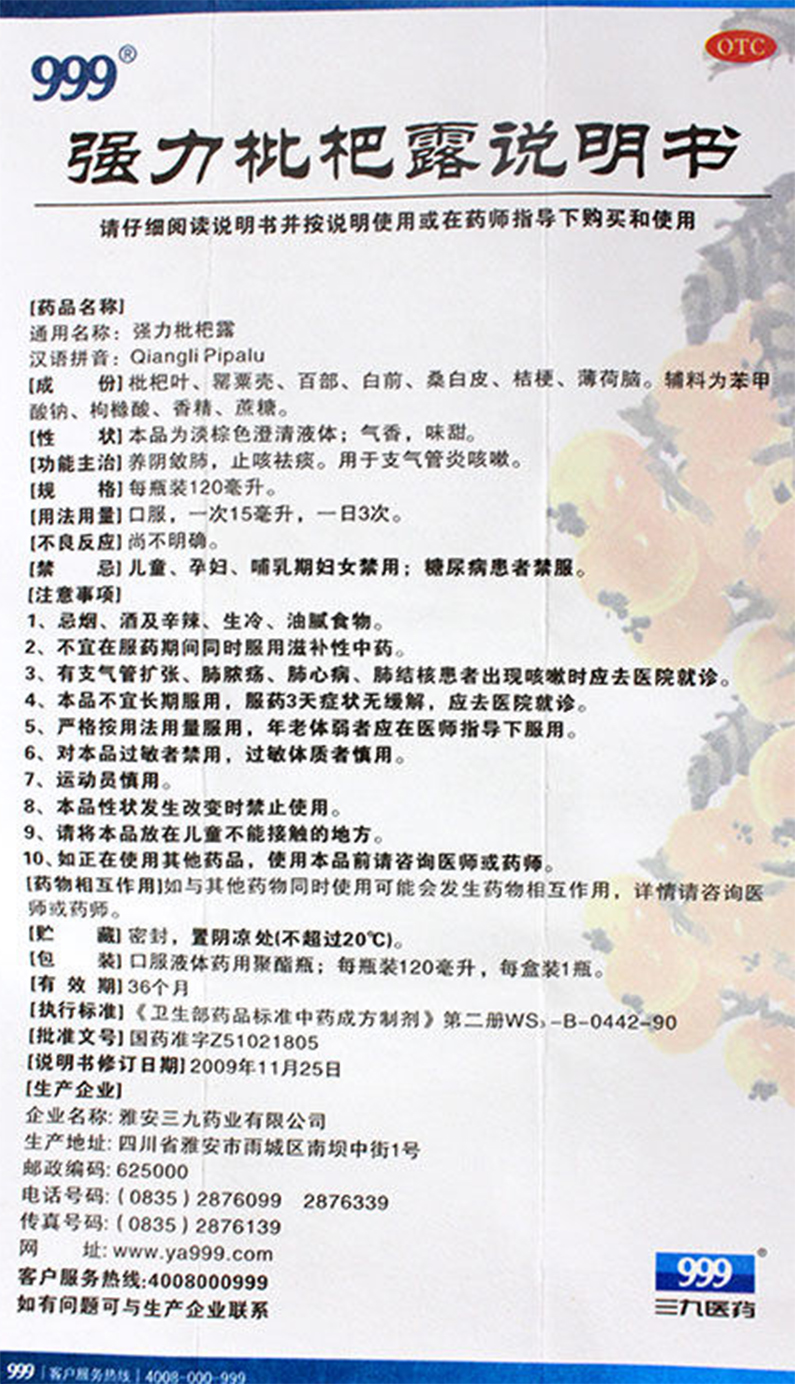 999®
OTC
强力枇杷露说明书
请仔细阅读说明书并按说明使用或在药师指导下购买和使用
[药品名称]
通用名称：强力枇杷露
汉语拼音：Qiangli Pipalu
[成 份]枇杷叶、罂粟壳、百部、白前、桑白皮、桔梗、薄荷脑。辅料为苯甲
酸钠、枸橼酸、香精、蔗糖。
[性 状]本品为淡棕色澄清液体；气香，味甜。
[功能主治]养阴敛肺，止咳祛痰。用于支气管炎咳嗽。
[规 格]每瓶装120毫升。
[用法用量]口服，一次15毫升，一日3次。
[不良反应]尚不明确。
[禁 忌]儿童、孕妇、哺乳期妇女禁用；糖尿病患者禁服。
[注意事项]
1、忌烟、酒及辛辣、生冷、油腻食物。
2、不宜在服药期间同时服用滋补性中药。
3、有支气管扩张、肺脓疡、肺心病、肺结核患者出现咳嗽时应去医院就诊。
4、本品不宜长期服用，服药3天症状无缓解，应去医院就诊。
5、严格按用法用量服用，年老体弱者应在医师指导下服用。
6、对本品过敏者禁用，过敏体质者慎用。
7、运动员慎用。
8、本品性状发生改变时禁止使用。
9、请将本品放在儿童不能接触的地方。
10、如正在使用其他药品，使用本品前请咨询医师或药师。
[药物相互作用]如与其他药物同时使用可能会发生药物相互作用，详情请咨询医
师或药师。
[贮 藏]密封，置阴凉处(不超过20℃)。
[包 装]口服液体药用聚酯瓶；每瓶装120毫升，每盒装1瓶。
[有 效 期]36个月
[执行标准]《卫生部药品标准中药成方制剂》第二册WS₃-B-0442-90
[批准文号]国药准字Z51021805
[说明书修订日期]2009年11月25日
[生产企业]
企业名称：雅安三九药业有限公司
生产地址：四川省雅安市雨城区南坝中街1号
邮政编码：625000
电话号码：(0835)2876099 2876339
传真号码：(0835)2876139
网 址：www.ya999.com
客户服务热线:4008000999
如有问题可与生产企业联系
999®
三九医药
999 | 客户服务热线 | 4008-000-999